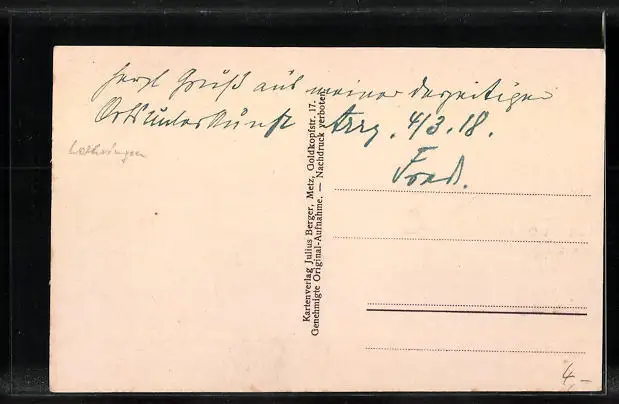 Herzl Gruß aus meiner derzeitigen
Ortsunterkunft Arry. 4/3.18.
Fred.
Lothringen
Kartenverlag Julius Berger, Metz, Goldkopfstr. 17.
Genehmigte Original-Aufnahme. — Nachdruck verboten.
4,-